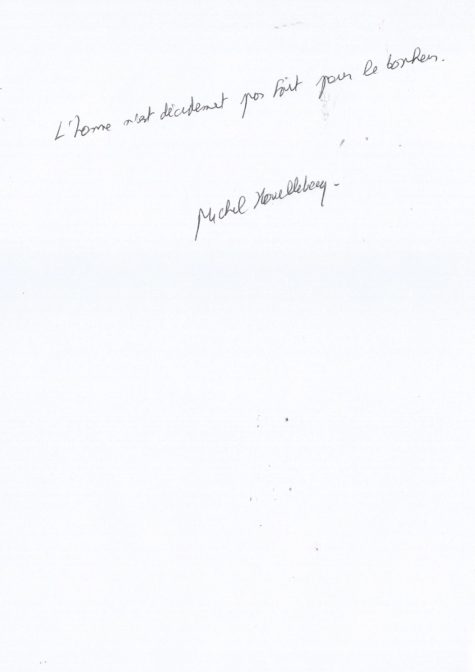 L'homme n'est décidément pas fait pour le bonheur.
Michel Houellebecq -